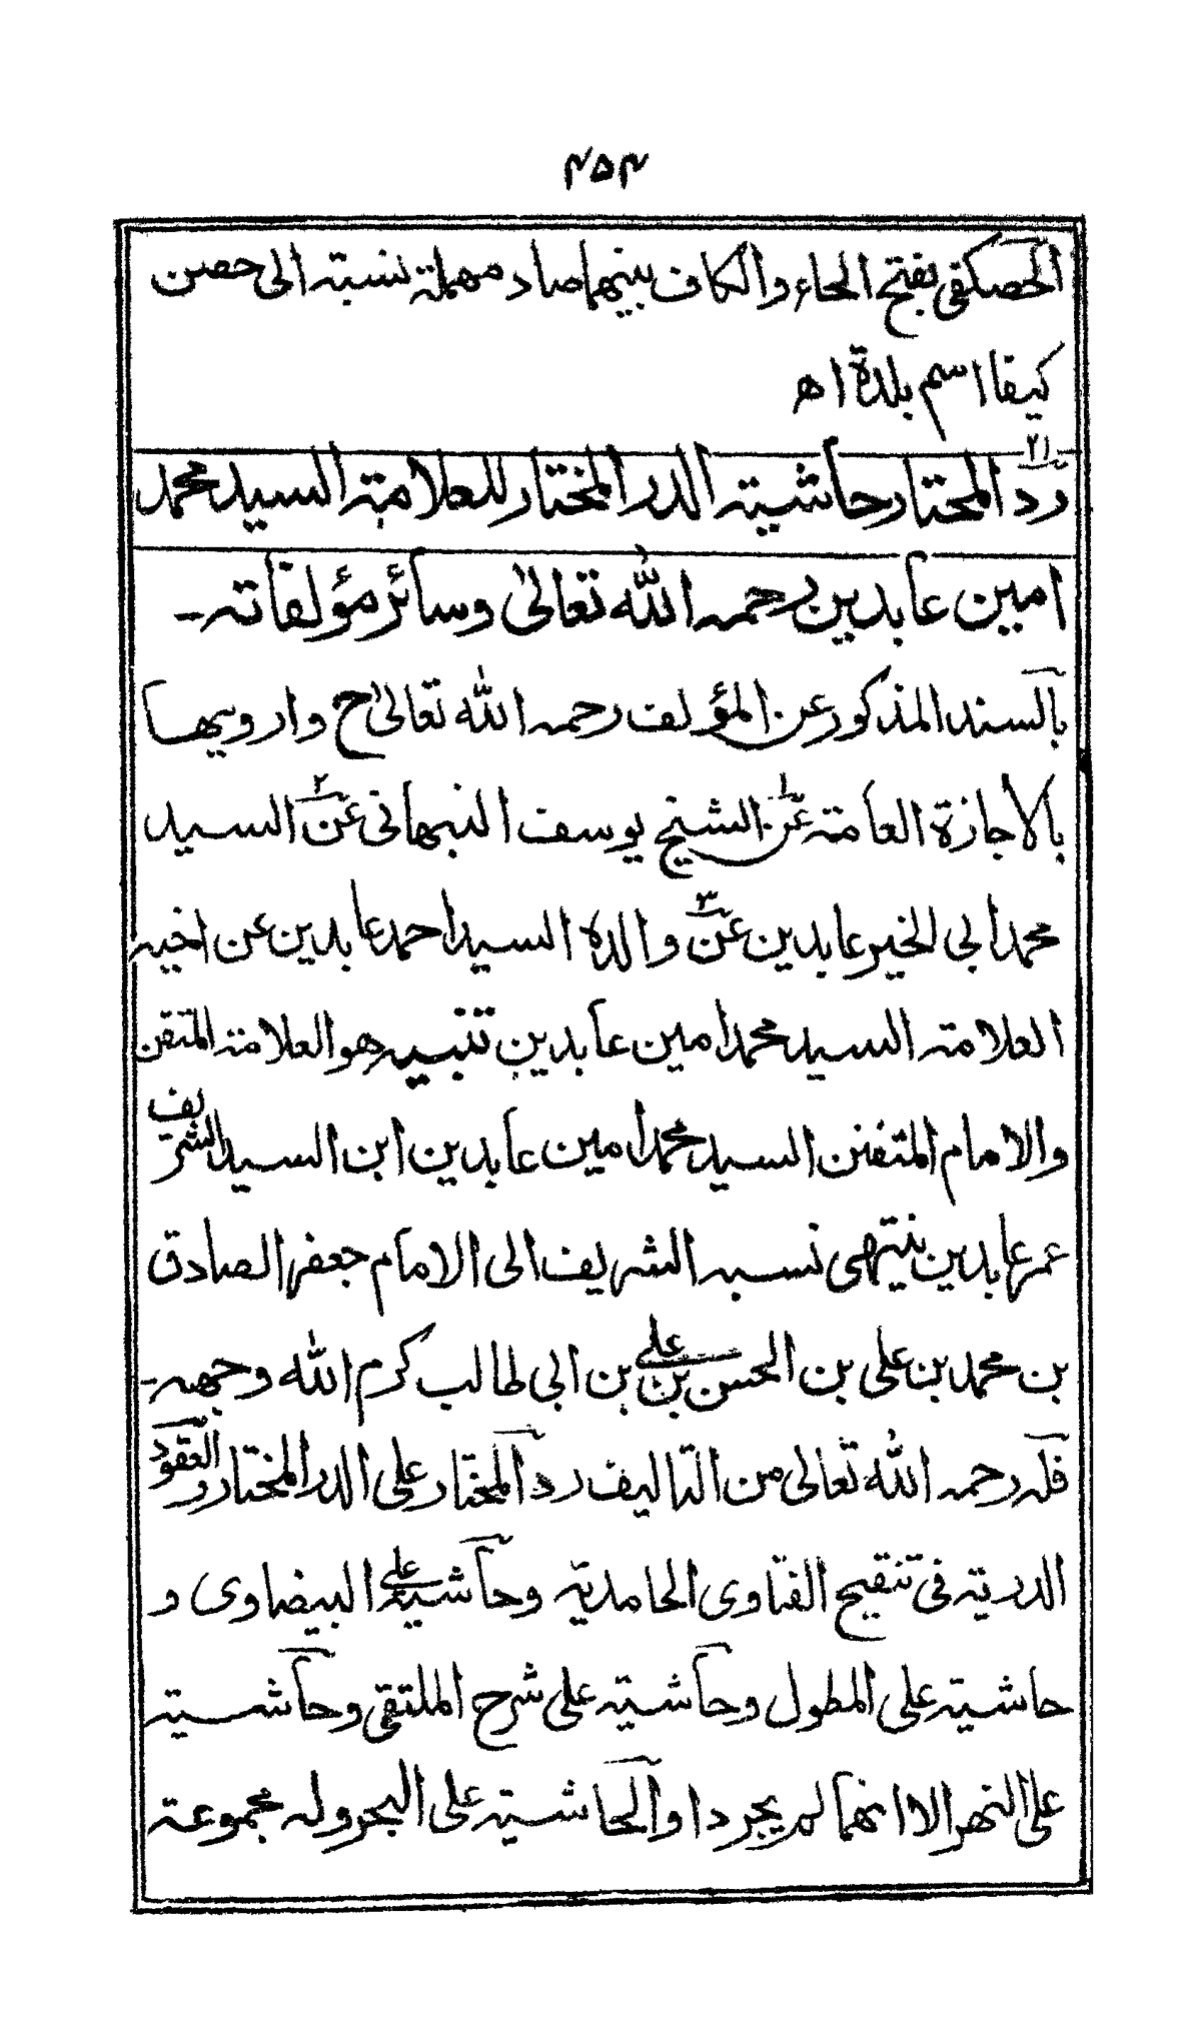 ۴۵۴
الحصكفی بفتح الحاء والكاف بينهما صاد مهملة نسبته الى حصن
كيفا اسم بلدة اھ
۲۱
رد المحتار حاشيته الدر المختار للعلامته السيد محمد
امين عابدين رحمه الله تعالىٰ وسائر مؤلفاته۔
بالسند المذكور عن المؤلف رحمه الله تعالىٰ ح وارويها
بالاجازة العامته عن۱ الشيخ يوسف النبهانی عن۲ السيد
محمد ابی الخير عابدين عن۳ والده السيد احمد عابدين عن اخيه
العلامته السيد محمد امين عابدين تنبيه هو العلامته المتقن
والامام المتفنن السيد محمد امين عابدين ابن السيد الشريف
عمر عابدين ينتهی نسبه الشريف الى الامام جعفر الصادق
بن محمد بن علی بن الحسن بن علی بن ابی طالب كرم الله وجهه۔
فله رحمه الله تعالى من التاليف رد المحتار على الدر المختار و العقود
الدريته فی تنقيح الفتاوى الحامديته وحاشيته على البيضاوی و
حاشيته على المطول وحاشيته على شرح الملتقی وحاشيته
على النهر الا انهما لم يجردا والحاشيته على البحر وله مجموعته